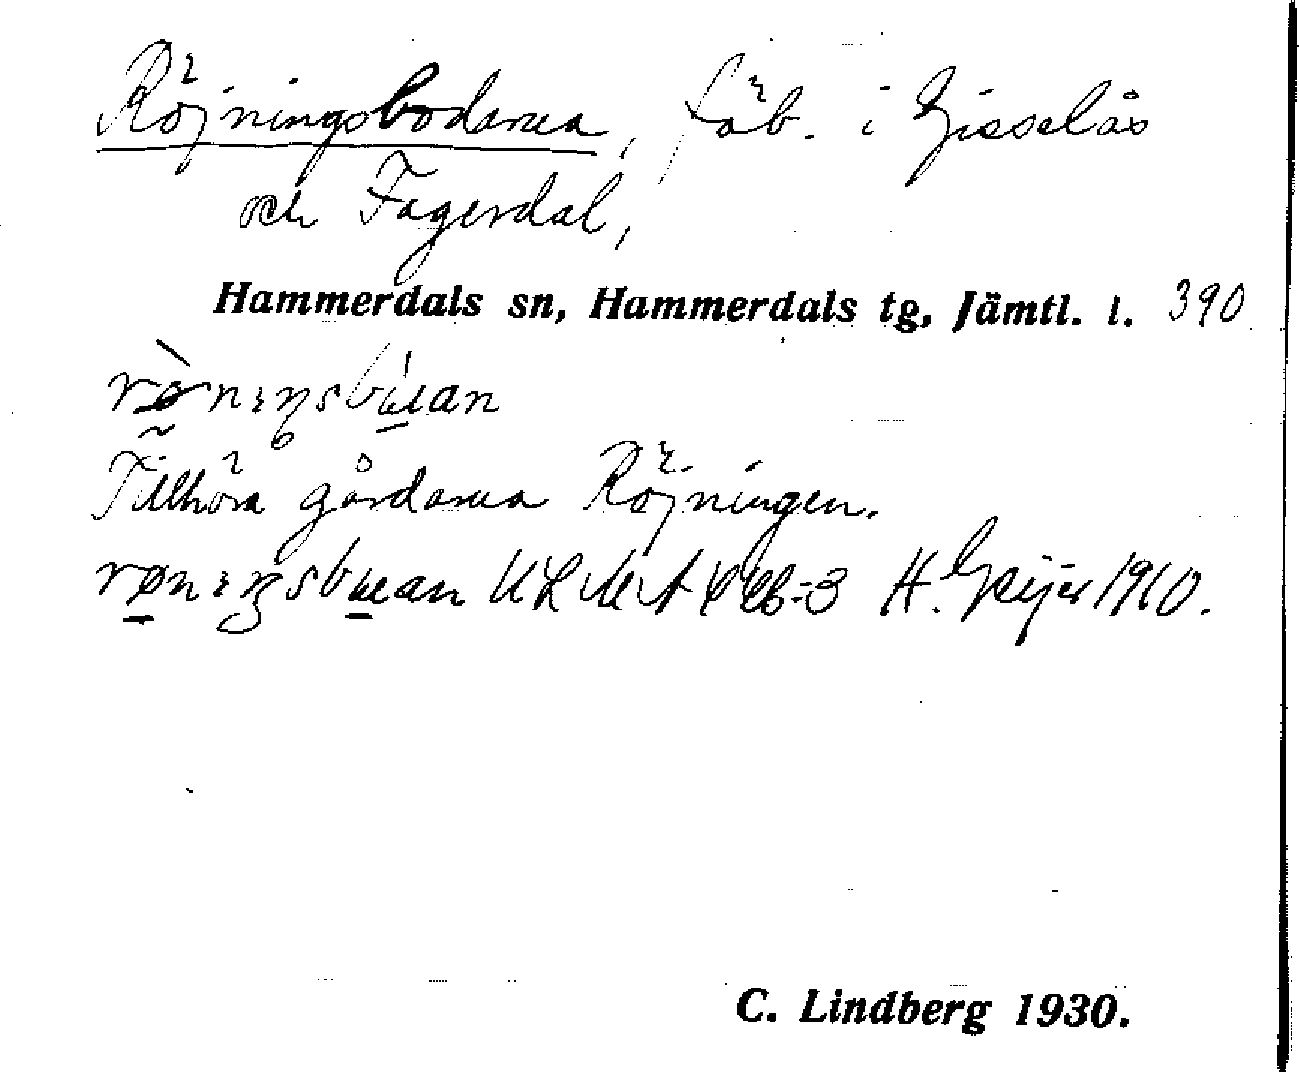 Röjningsbodarna, fäb. i Gisselås
och Fagerdal,
Hammerdals sn, Hammerdals tg, Jämtl. l. 390
Tillhöra gårdarna Röjningen.
H. Geijer 1910.
C. Lindberg 1930.